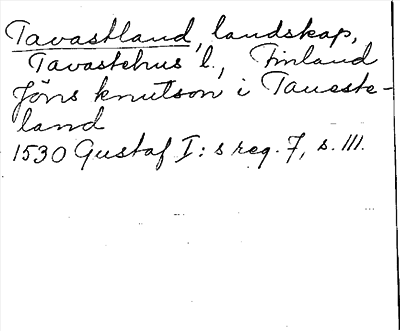 Tavastland, landskap,
Tavastehus l., Finland
Jöns Knutson i Taueste-
land
1530 Gustaf I:s reg. 7, s. 111.